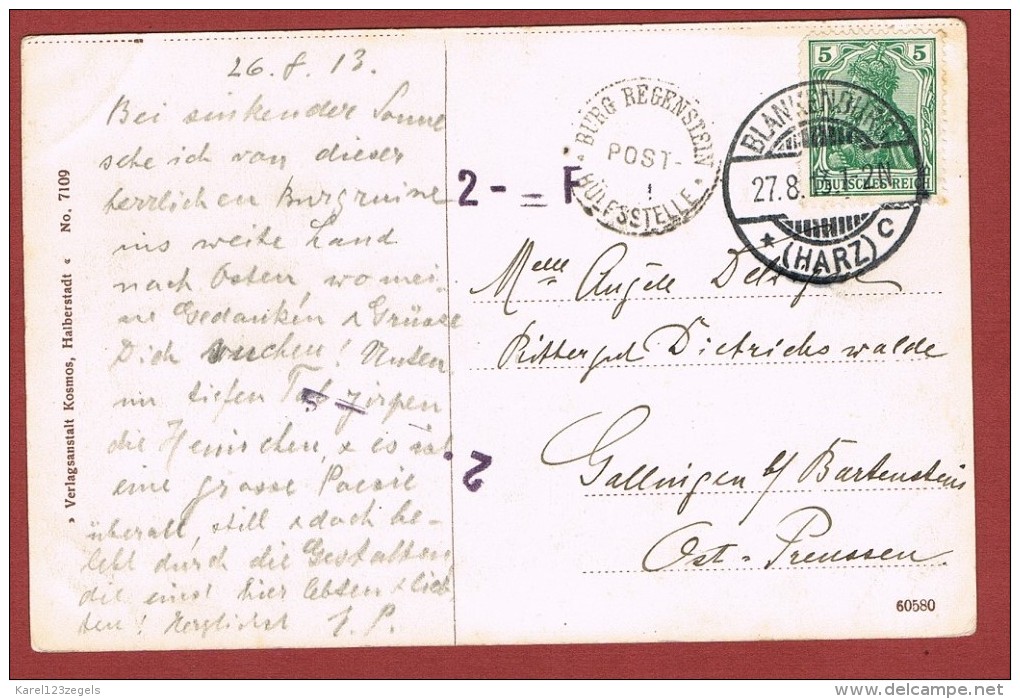 26.8.13.
Bei sinkender Sonne
sehe ich von dieser
herrlichen Burgruine
ins weite Land
nach Osten, wo mei-
ne Gedanken & Grüsse
Dich suchen! Unten
im tiefen Tal zirpen
die Heimchen, & es ist
eine grosse Poesie
überall, still & doch be-
lebt durch die Gestalten,
die einst hier lebten & lieb
ten! Herzlichst J. P.
» Verlagsanstalt Kosmos, Halberstadt « No. 7109
2 - = F
5
2.
BURG REGENSTEIN
POST-
HÜLFSSTELLE
5 5
DEUTSCHES REICH
BLANKENBURG
27.8. 1-2N
* (HARZ) C
Melle Angèle
Rittergut Dietrichswalde
Gallingen b/ Bartenstein
Ost-Preussen
60580
Karel123zegels
delcampe.net